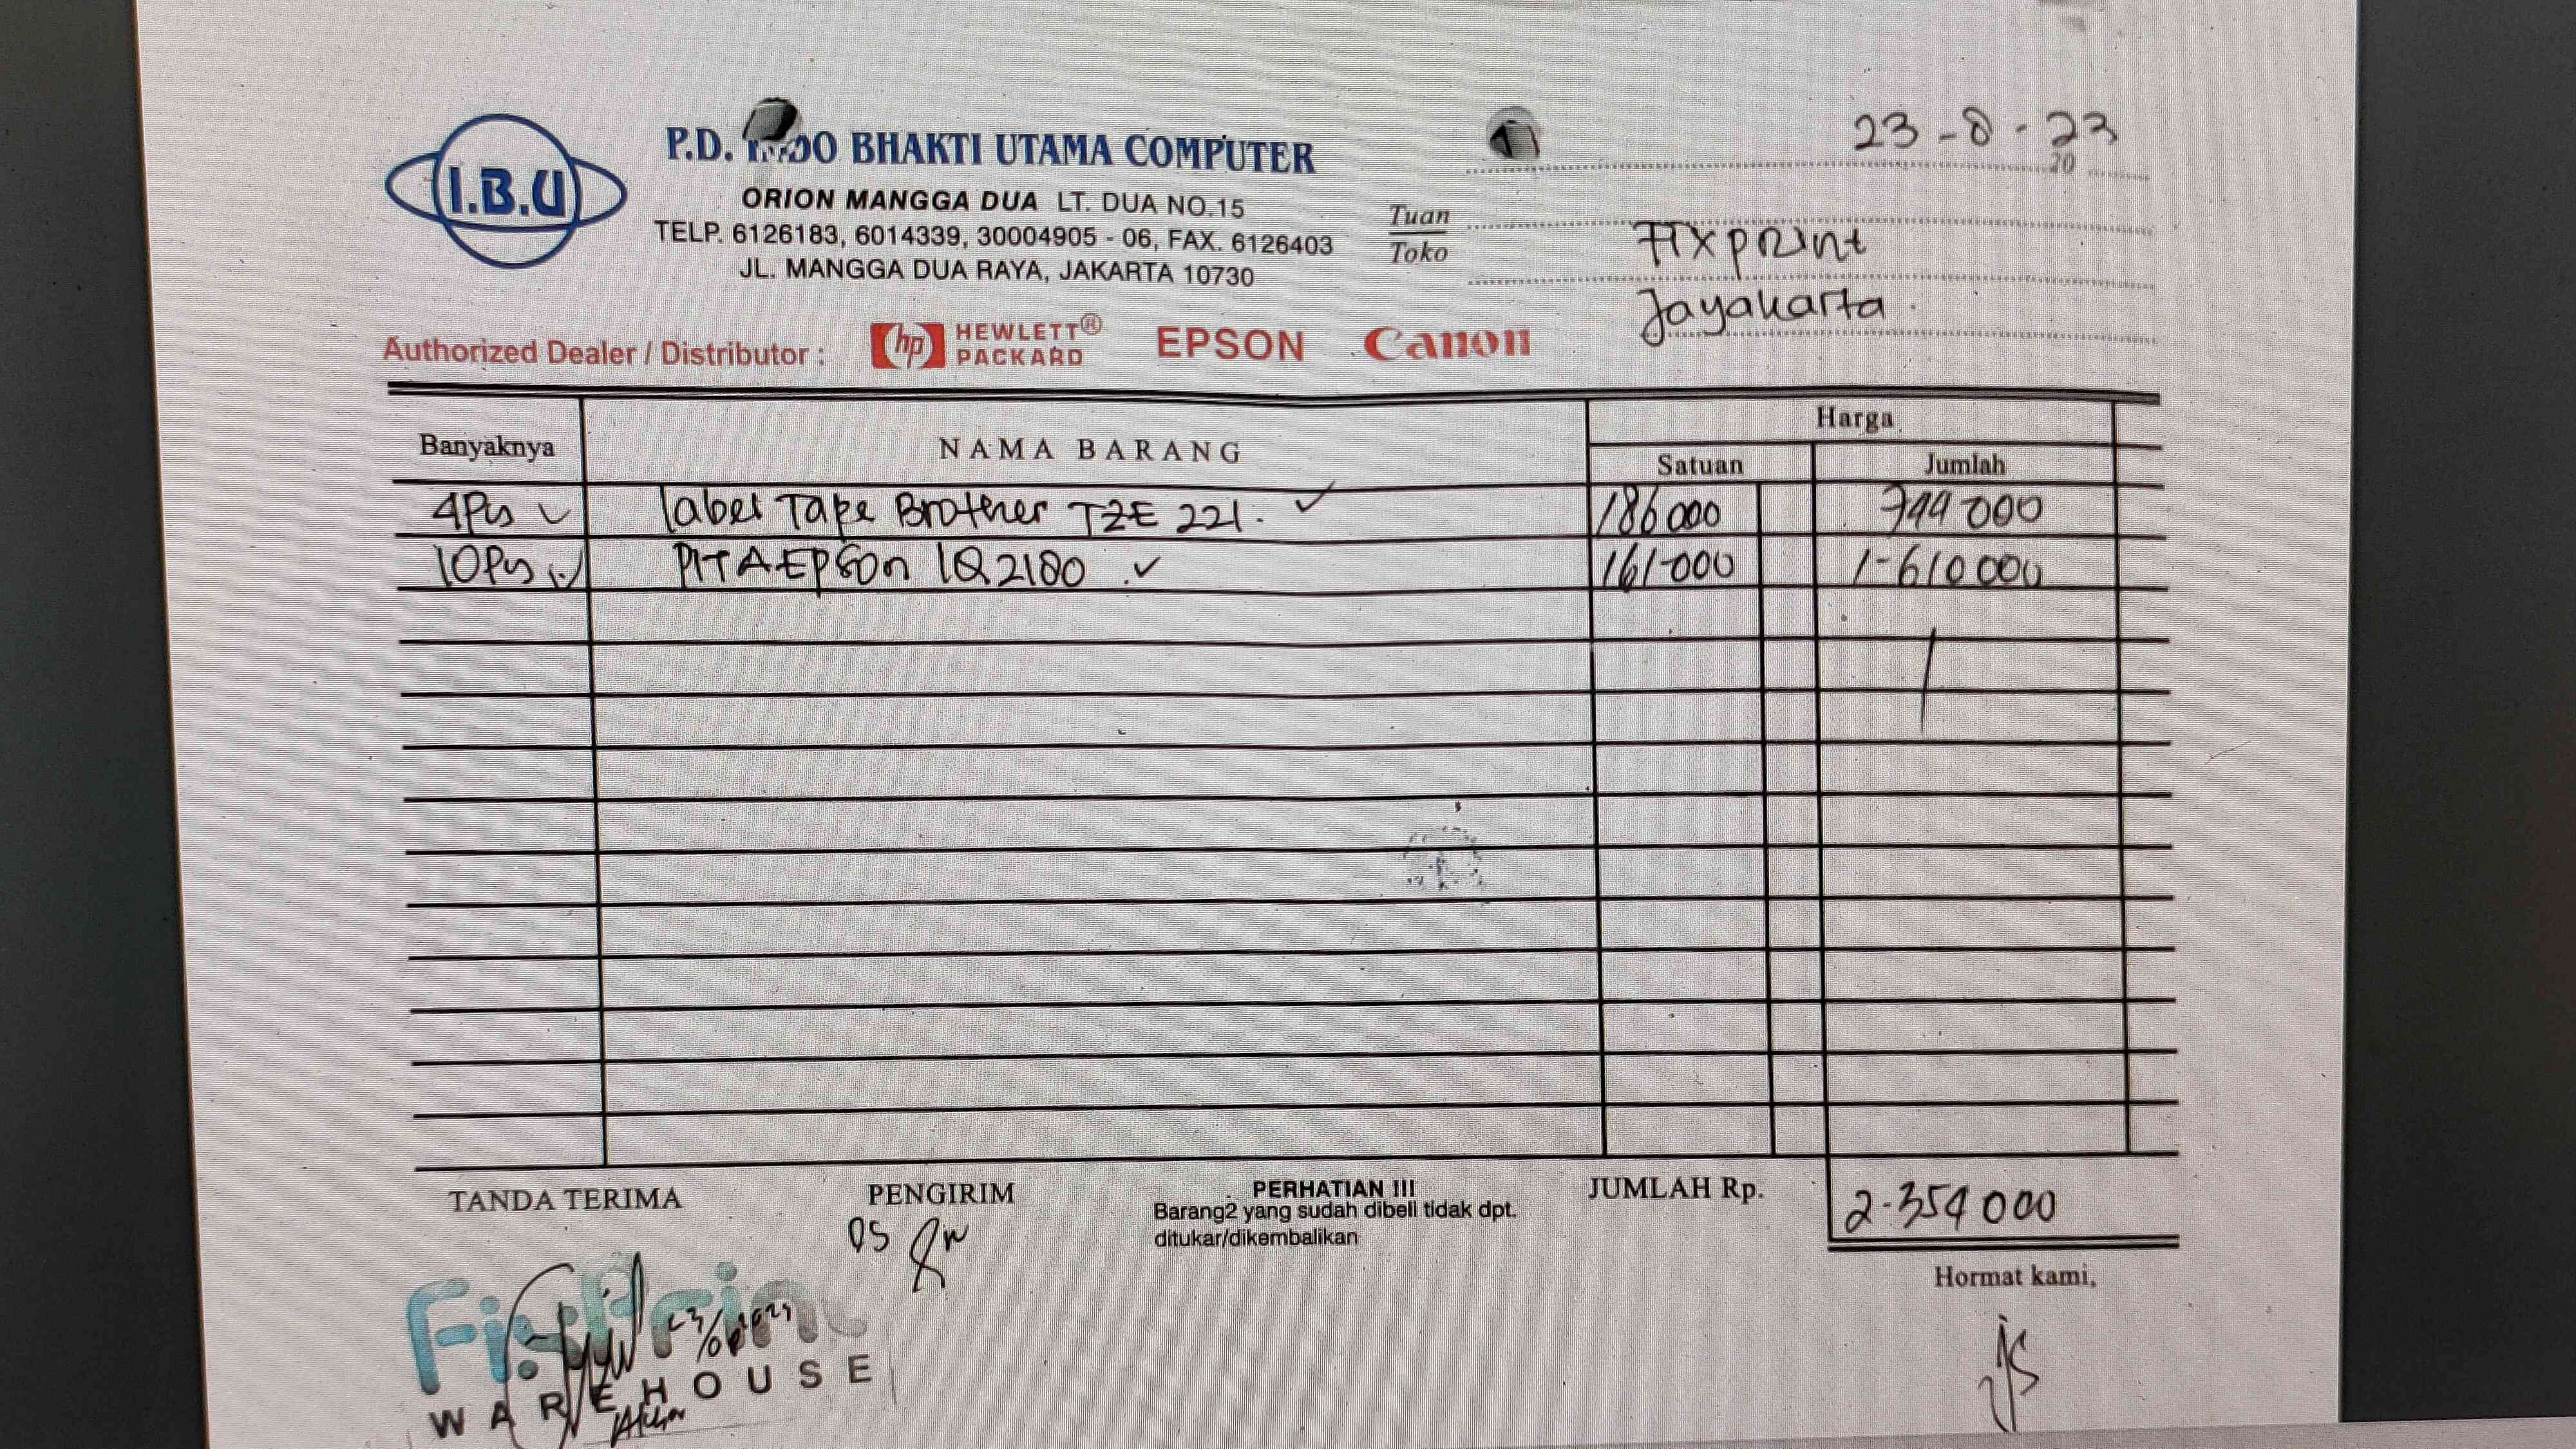 I.B.U
P.D. INDO BHAKTI UTAMA COMPUTER
ORION MANGGA DUA LT. DUA NO.15
TELP. 6126183, 6014339, 30004905 - 06, FAX. 6126403
JL. MANGGA DUA RAYA, JAKARTA 10730
23-8-23
20
Tuan
Toko
Fixprint
Jayakarta
Authorized Dealer / Distributor : hp HEWLETT® PACKARD EPSON Canon
Banyaknya NAMA BARANG Harga
Satuan Jumlah
4Pcs label Tape Brother TZE 221. 186000 744000
10Pcs PITA EPSon LQ2180 161-000 1-610000
TANDA TERIMA PENGIRIM PERHATIAN !!! JUMLAH Rp. 2-354000
Barang2 yang sudah dibeli tidak dpt.
ditukar/dikembalikan
Hormat kami,
FixPrint
WAREHOUSE